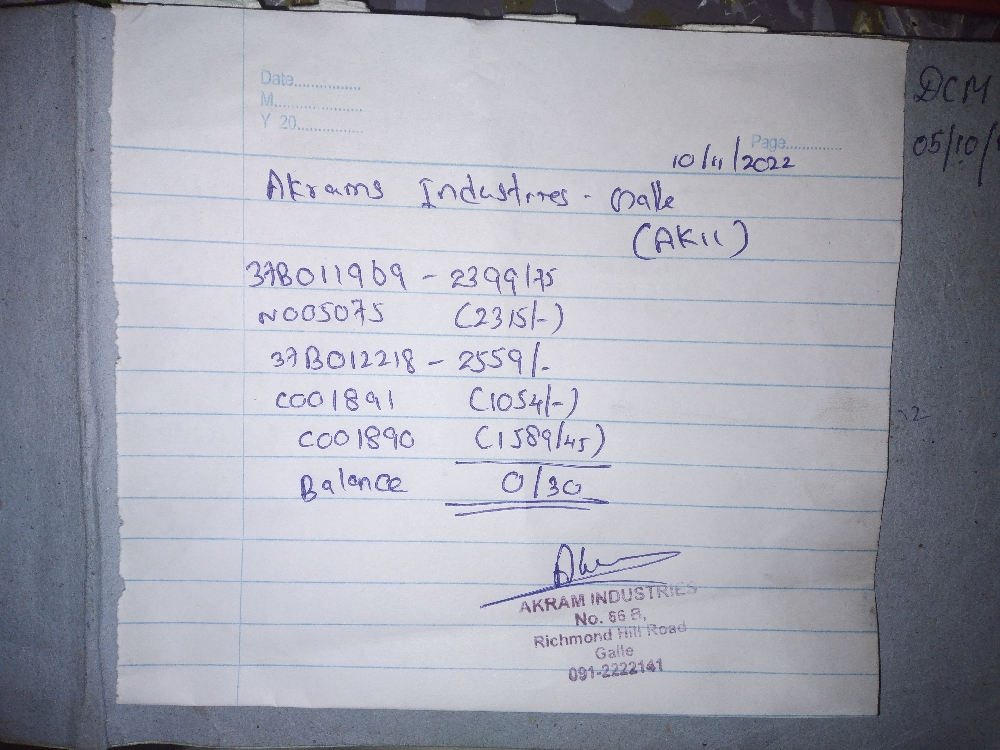 Date................
M.....................
Y 20................
Page..............
10/11/2022
Akrams Industries - Galle
(AK11)
37B011969 - 2399/75
N005075 (2315/-)
37B012218 - 2559/-
C001891 (1054/-)
C001890 (1589/45)
Balance 0/30
AKRAM INDUSTRIES
No. 66 B,
Richmond Hill Road
Galle
091-2222141
DCM
05/10/